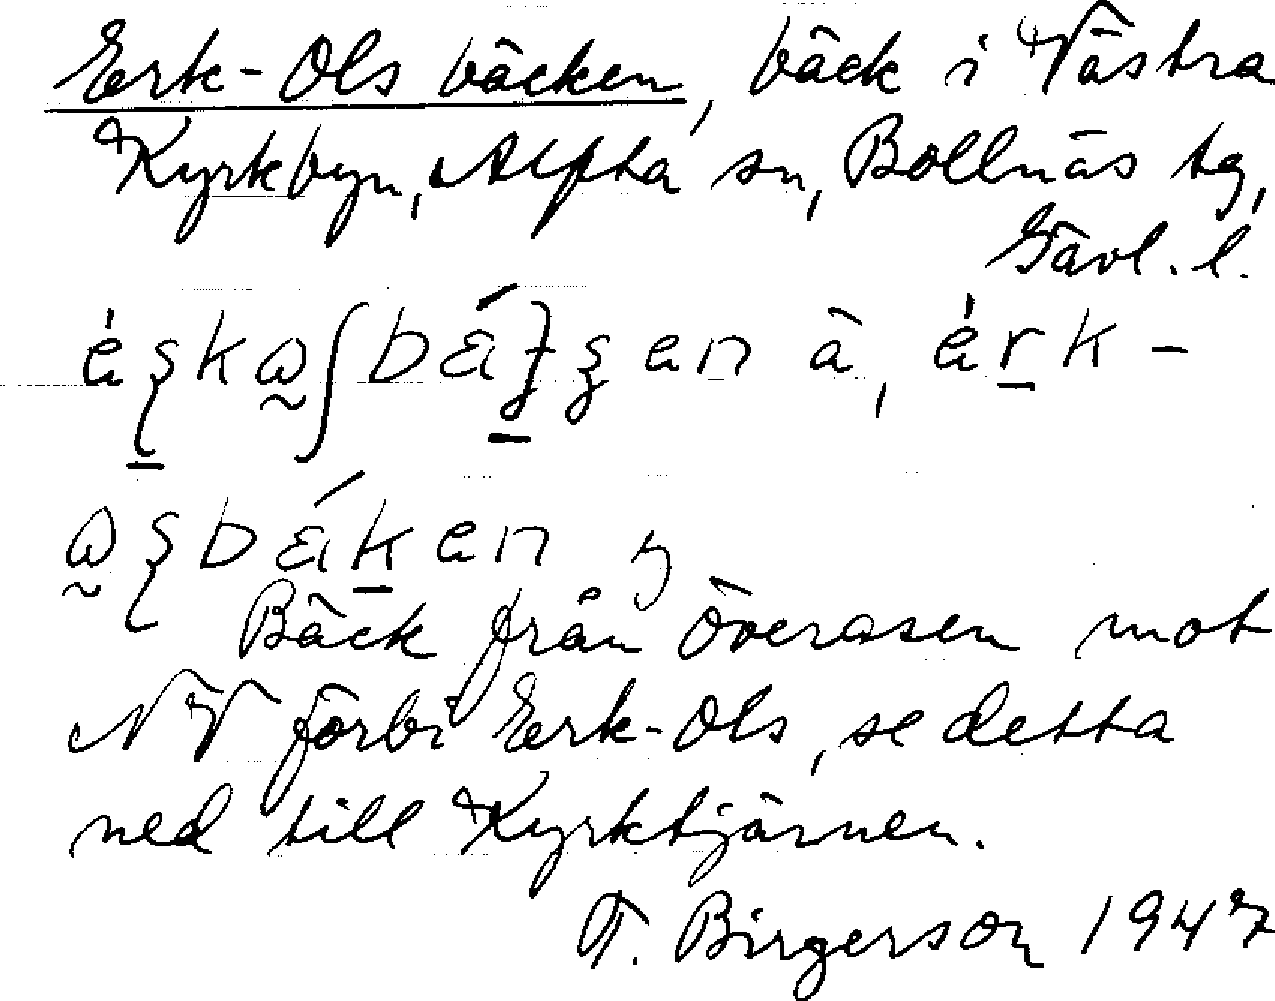 Eerk-Ols bäcken, bäck i Västra
Kyrkbyn, Alfta sn, Bollnäs tg,
Gävl. l.
Bäck från Överåsen mot
NV förbi Eerk-Ols, se detta
ned till Kyrktjärnen.
T. Birgerson 1947